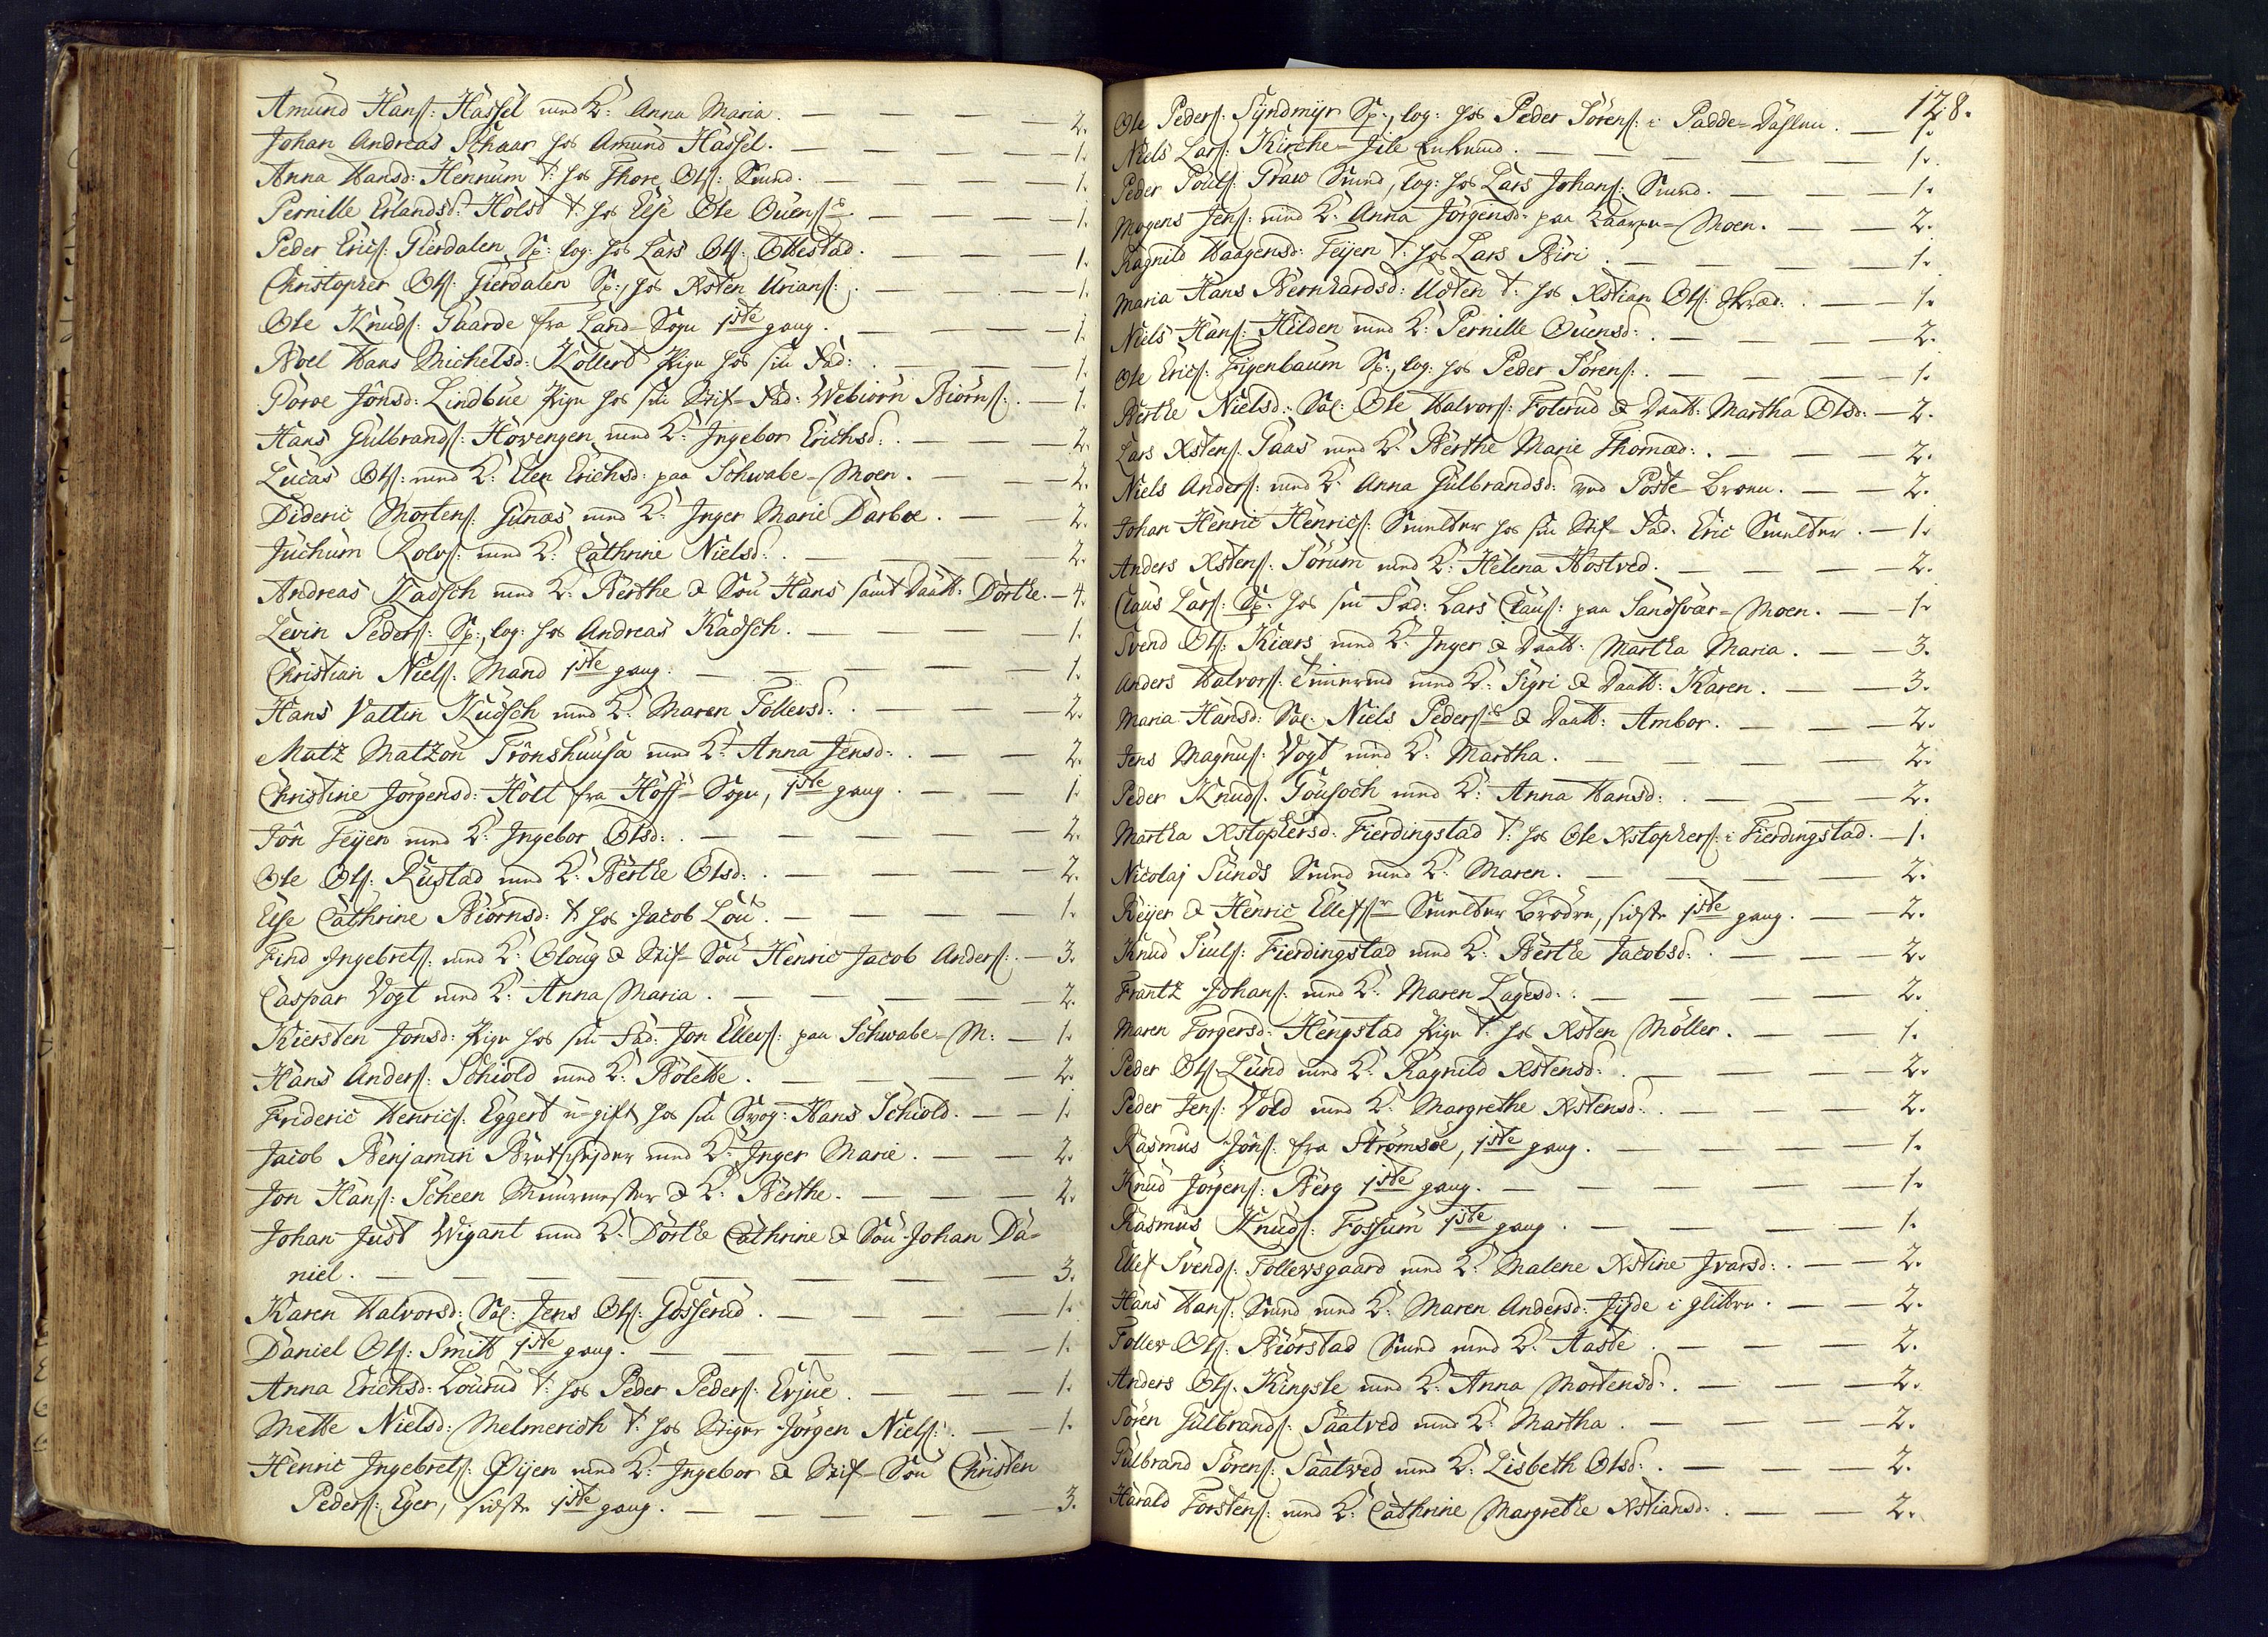 Amund Hans: Hassel med K: Anna Maria. — 2.
Johan Andreas Schaar hos Amund Hassel. — 1.
Anna Hansd: Hennum t: hos Thore Ols: Smed. — 1.
Pernille Erlandsd: Holst t: hos Else Ole Ouens — 1.
Peder Erics: Gierdalen Sp: log: hos Lars Ols: Ottestad. — 1.
Christopher Ols: Gierdalen Sp:, hos Xsten Urians: — 1.
Ole Knuds: Gaarde fra Land-Sogn 1ste gang. — 1.
Boel Hans Michelsd: Kollert Pige hos sin Fad: — 1.
Goroe Jonsd: Lindbue Pige hos sin Stif-Fad: Webiörn Biörns: — 1.
Hans Gulbrands: Hövengen med K: Ingebor Erichsd: — 2.
Lucas Ols: med K: Elen Erichsd: paa Schwabe-Moen. — 2.
Dideric Mortens: Gunæs med K: Inger Marie Darboe. — 2.
Juchum Rolvs: med K: Cathrine Nielsd: — 2.
Andreas Kadsch med K: Berthe & Sön Hans samt Daatt: Dorthe. — 4.
Levin Peders: Sp:, log: hos Andreas Kadsch. — 1.
Christian Niels: Mand 1ste gang. — 1.
Hans Valtin Kudsch med K: Maren Tollevsd: — 2.
Matz Matzön Trönshuusa med K: Anna Jensd: — 2.
Christine Jörgensd: Holt fra Hoff-Sogn, 1ste gang. — 1.
Jön Teyen med K: Ingebor Olsd: — 2.
Ole Ols: Rustad med K: Berthe Olsd: — 2.
Else Cathrine Biörnsd: t: hos Jacob Löu. — 1.
Find Ingebrets: med K: Oloug & Stif-Sön Henric Jacob Anders: — 3.
Caspar Vogt med K: Anna Maria. — 2.
Kiersten Jonsd: Pige hos sin Fad: Jon Ellevs: paa Schwabe-M: — 1.
Hans Anders: Schiold med K: Bolette. — 2.
Frideric Henrics: Eggert u-gift hos sin Svog: Hans Schiold. — 1.
Jacob Benjamin Bretschejder med K: Inger Marie. — 2.
Jon Hans: Scheen Muurmester & K: Berthe. — 2.
Johan Just Wigant med K: Dorthe Cathrine & Sön Johan Da-
niel. — 3.
Karen Halvorsd: Sal: Jens Ols: Gosserud. — 1.
Daniel Ols: Smitt 1ste gang. — 1.
Anna Erichsd: Lourud t: hos Peder Peders: Evjue. — 1.
Mette Nielsd: Melmerich t: hos Stiger Jörgen Niels: — 1.
Henric Ingebrets: Øijen med K: Ingebor & Stif-Sön Christen
Peders: Eger, sidste 1ste gang. — 3.
128.
Ole Peders: Syndmyr Sp:, log: hos Peder Sörens: i Padde-Dahlen. — 1.
Niels Lars: Kirche- — 1.
Peder Pouls: Graw Smed, log: hos Lars Johans: Smed. — 1.
Mogens Jens: med K: Anna Jörgensd: paa Laagen-Moen. — 2.
Ragnild Haagensd: Teyen t: hos Lars Biri. — 1.
Maria Hans Bernhardsd: Usten t: hos Xstian Ols: — 1.
Niels Hans: Hilden med K: Pernille Ouensd: — 2.
Ole Erics: Figenbaum Sp:, log: hos Peder Sörens: — 1.
Berthe Nielsd: Sal: Ole Halvors: Foterud & Daatt: Martha Olsd: — 2.
Lars Xstens: Gaas med K: Berthe Marie Thomæd: — 2.
Niels Anders: med K: Anna Gulbrandsd: ved Poste-Broen. — 2.
Johan Henric Henrics: Smelter hos sin Stif-Fad: Eric Smelter. — 1.
Anders Xstens: Sörum med K: Helena Hostved. — 2.
Claus Lars: Sp: hos sin Fad: Lars Claus: paa Sandsvær-Moen. — 1.
Svend Ols: Kiærs med K: Inger & Daatt: Martha Maria. — 3.
Anders Halvors: Timerud med K: Sigri & Daatt: Karen. — 3.
Maria Hansd: Sal: Niels Peders & Daatt: Ambor. — 2.
Jens Magnus: Vogt med K: Martha. — 2.
Peder Knuds: Gousoch med K: Anna Hansd: — 2.
Martha Xstophersd: Fierdingstad t: hos Ole Xstophers: i Fierdingstad. — 1.
Nicolaj Sunds Smed med K: Maren. — 2.
Reyer & Henric Ellefss Smelter Brödre, sidste 1ste gang. — 2.
Knud Siuls: Fierdingstad med K: Berthe Jacobsd: — 2.
Frantz Johans: med K: Maren Lagesd: — 2.
Maren Torgersd: Hengstad Pige t: hos Xsten Möller. — 1.
Peder Ols: Lund med K: Ragnild Xstensd: — 2.
Peder Jens: Vold med K: Margrethe Xstensd: — 2.
Rasmus Jöns: fra Strömsöe, 1ste gang. — 1.
Knud Jörgens: Berg 1ste gang. — 1.
Rasmus Knuds: Fossum 1ste gang. — 1.
Ellef Svends: Tollevsgaard med K: Malene Xstine Ivarsd: — 2.
Hans Hans: Smed med K: Maren Andersd: Jyde i glittre. — 2.
Tollev Ols: Biörstad Smed med K: Aaste. — 2.
Anders Ols: Kingste med K: Anna Mortensd: — 2.
Sören Gulbrands: Saatved med K: Martha. — 2.
Gulbrand Sörens: Saatved med K: Lisbeth Olsd: — 2.
Harald Torstens: med K: Cathrine Margrethe Xstiansd: — 2.